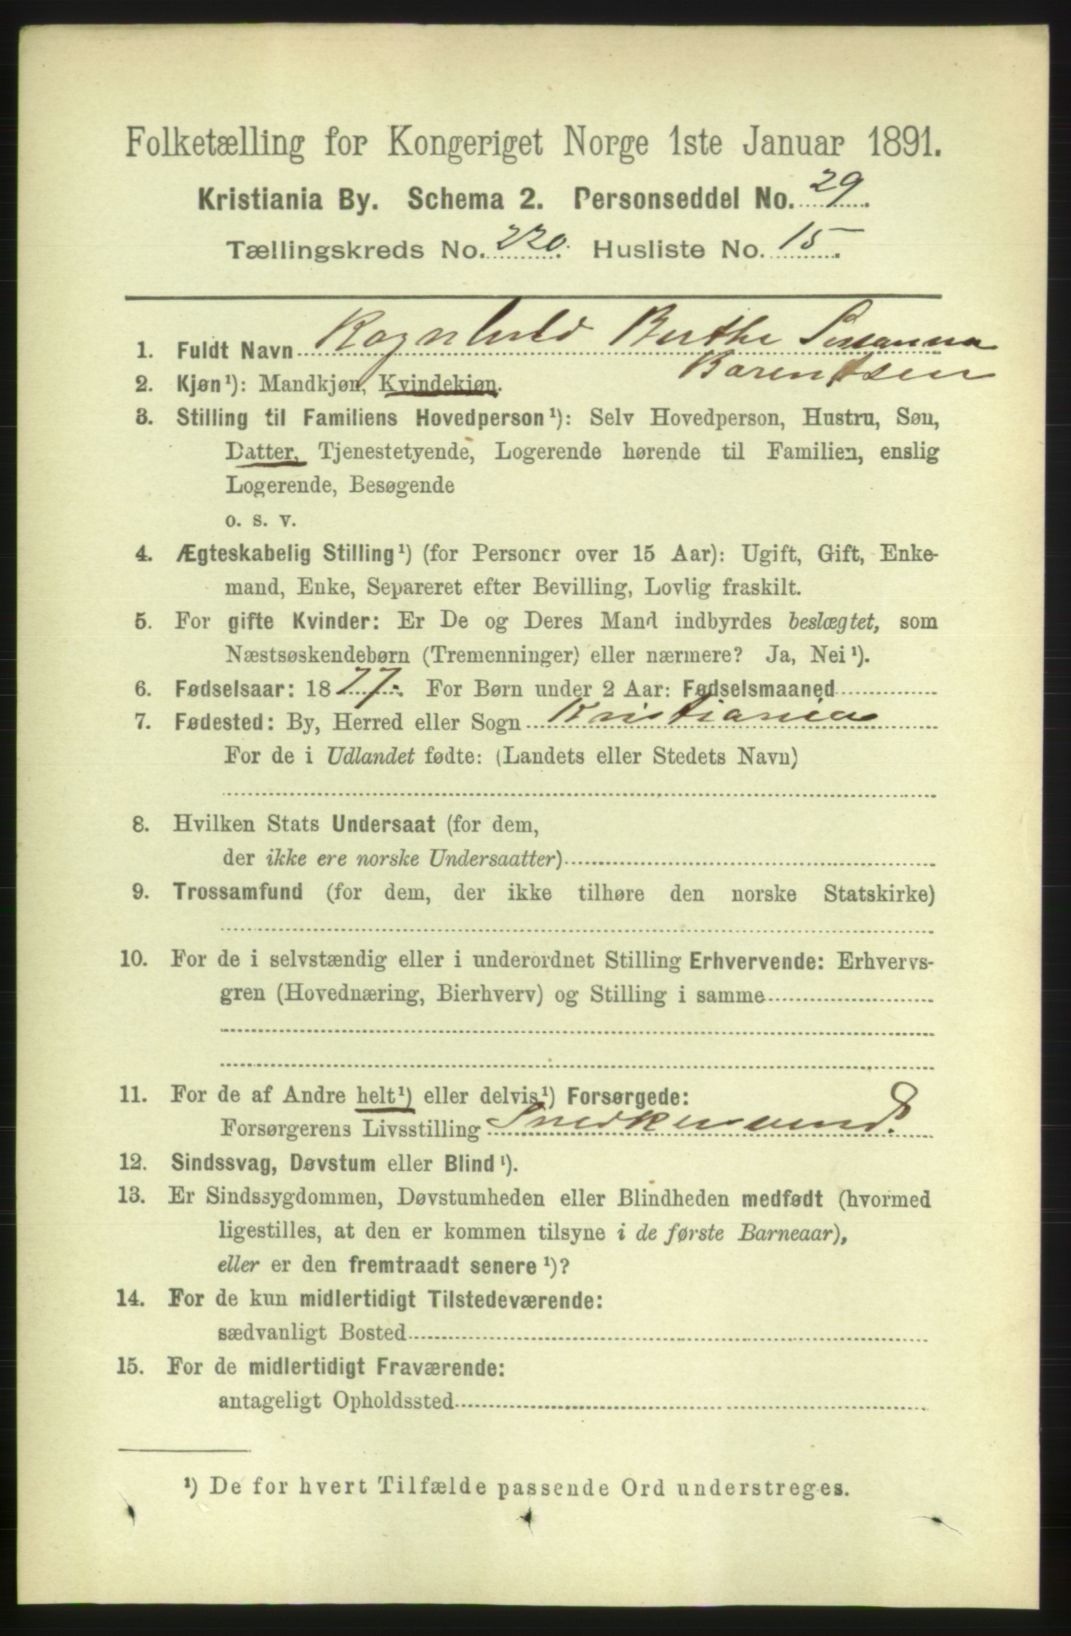 Folketælling for Kongeriget Norge 1ste Januar 1891.
Kristiania By. Schema 2. Personseddel No. 29.
Tællingskreds No. 220. Husliste No. 15.
1. Fuldt Navn Ragnhild Berthe Susanna
Barentsen
2. Kjøn¹): Mandkjøn, Kvindekjøn.
3. Stilling til Familiens Hovedperson¹): Selv Hovedperson, Hustru, Søn,
Datter, Tjenestetyende, Logerende hørende til Familien, enslig
Logerende, Besøgende
o. s. v.
4. Ægteskabelig Stilling¹) (for Personer over 15 Aar): Ugift, Gift, Enke-
mand, Enke, Separeret efter Bevilling, Lovlig fraskilt.
5. For gifte Kvinder: Er De og Deres Mand indbyrdes beslægtet, som
Næstsøskendebørn (Tremenninger) eller nærmere? Ja, Nei¹).
6. Fødselsaar: 1877. For Børn under 2 Aar: Fødselsmaaned
7. Fødested: By, Herred eller Sogn Kristiania
For de i Udlandet fødte: (Landets eller Stedets Navn)
8. Hvilken Stats Undersaat (for dem,
der ikke ere norske Undersaatter)
9. Trossamfund (for dem, der ikke tilhøre den norske Statskirke)
10. For de i selvstændig eller i underordnet Stilling Erhvervende: Erhvervs-
gren (Hovednæring, Bierhverv) og Stilling i samme
11. For de af Andre helt¹) eller delvis¹) Forsørgede:
Forsørgerens Livsstilling Snedkersvend.
12. Sindssvag, Døvstum eller Blind¹).
13. Er Sindssygdommen, Døvstumheden eller Blindheden medfødt (hvormed
ligestilles, at den er kommen tilsyne i de første Barneaar),
eller er den fremtraadt senere¹)?
14. For de kun midlertidigt Tilstedeværende:
sædvanligt Bosted
15. For de midlertidigt Fraværende:
antageligt Opholdssted
¹) De for hvert Tilfælde passende Ord understreges.